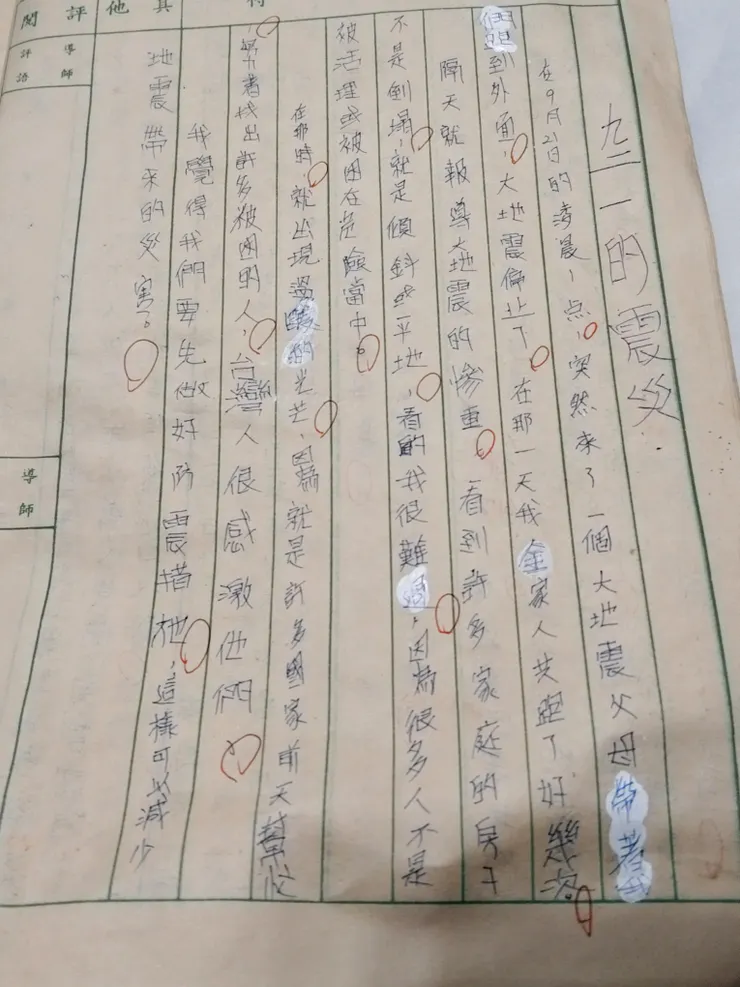 九二一的震災
在9月21日的凌晨1點，突然來了一個大地震父母帶著
們跑到外面，大地震停止了。在那一天我全家人共跑了好幾次
隔天就報導大地震的慘重。看到許多家庭的房子
不是倒塌，就是傾斜或平地，看的我很難過，因為很多人不是
被活埋或被困在危險當中。
在那時，就出現溫暖的光芒，因為就是許多國家前天幫忙
，努力著找出許多被困的人，台灣人很感激他們
我覺得我們要先做好防震措施，這樣可以減少
地震帶來的災害了。
其他
評閱
導師評語
導師